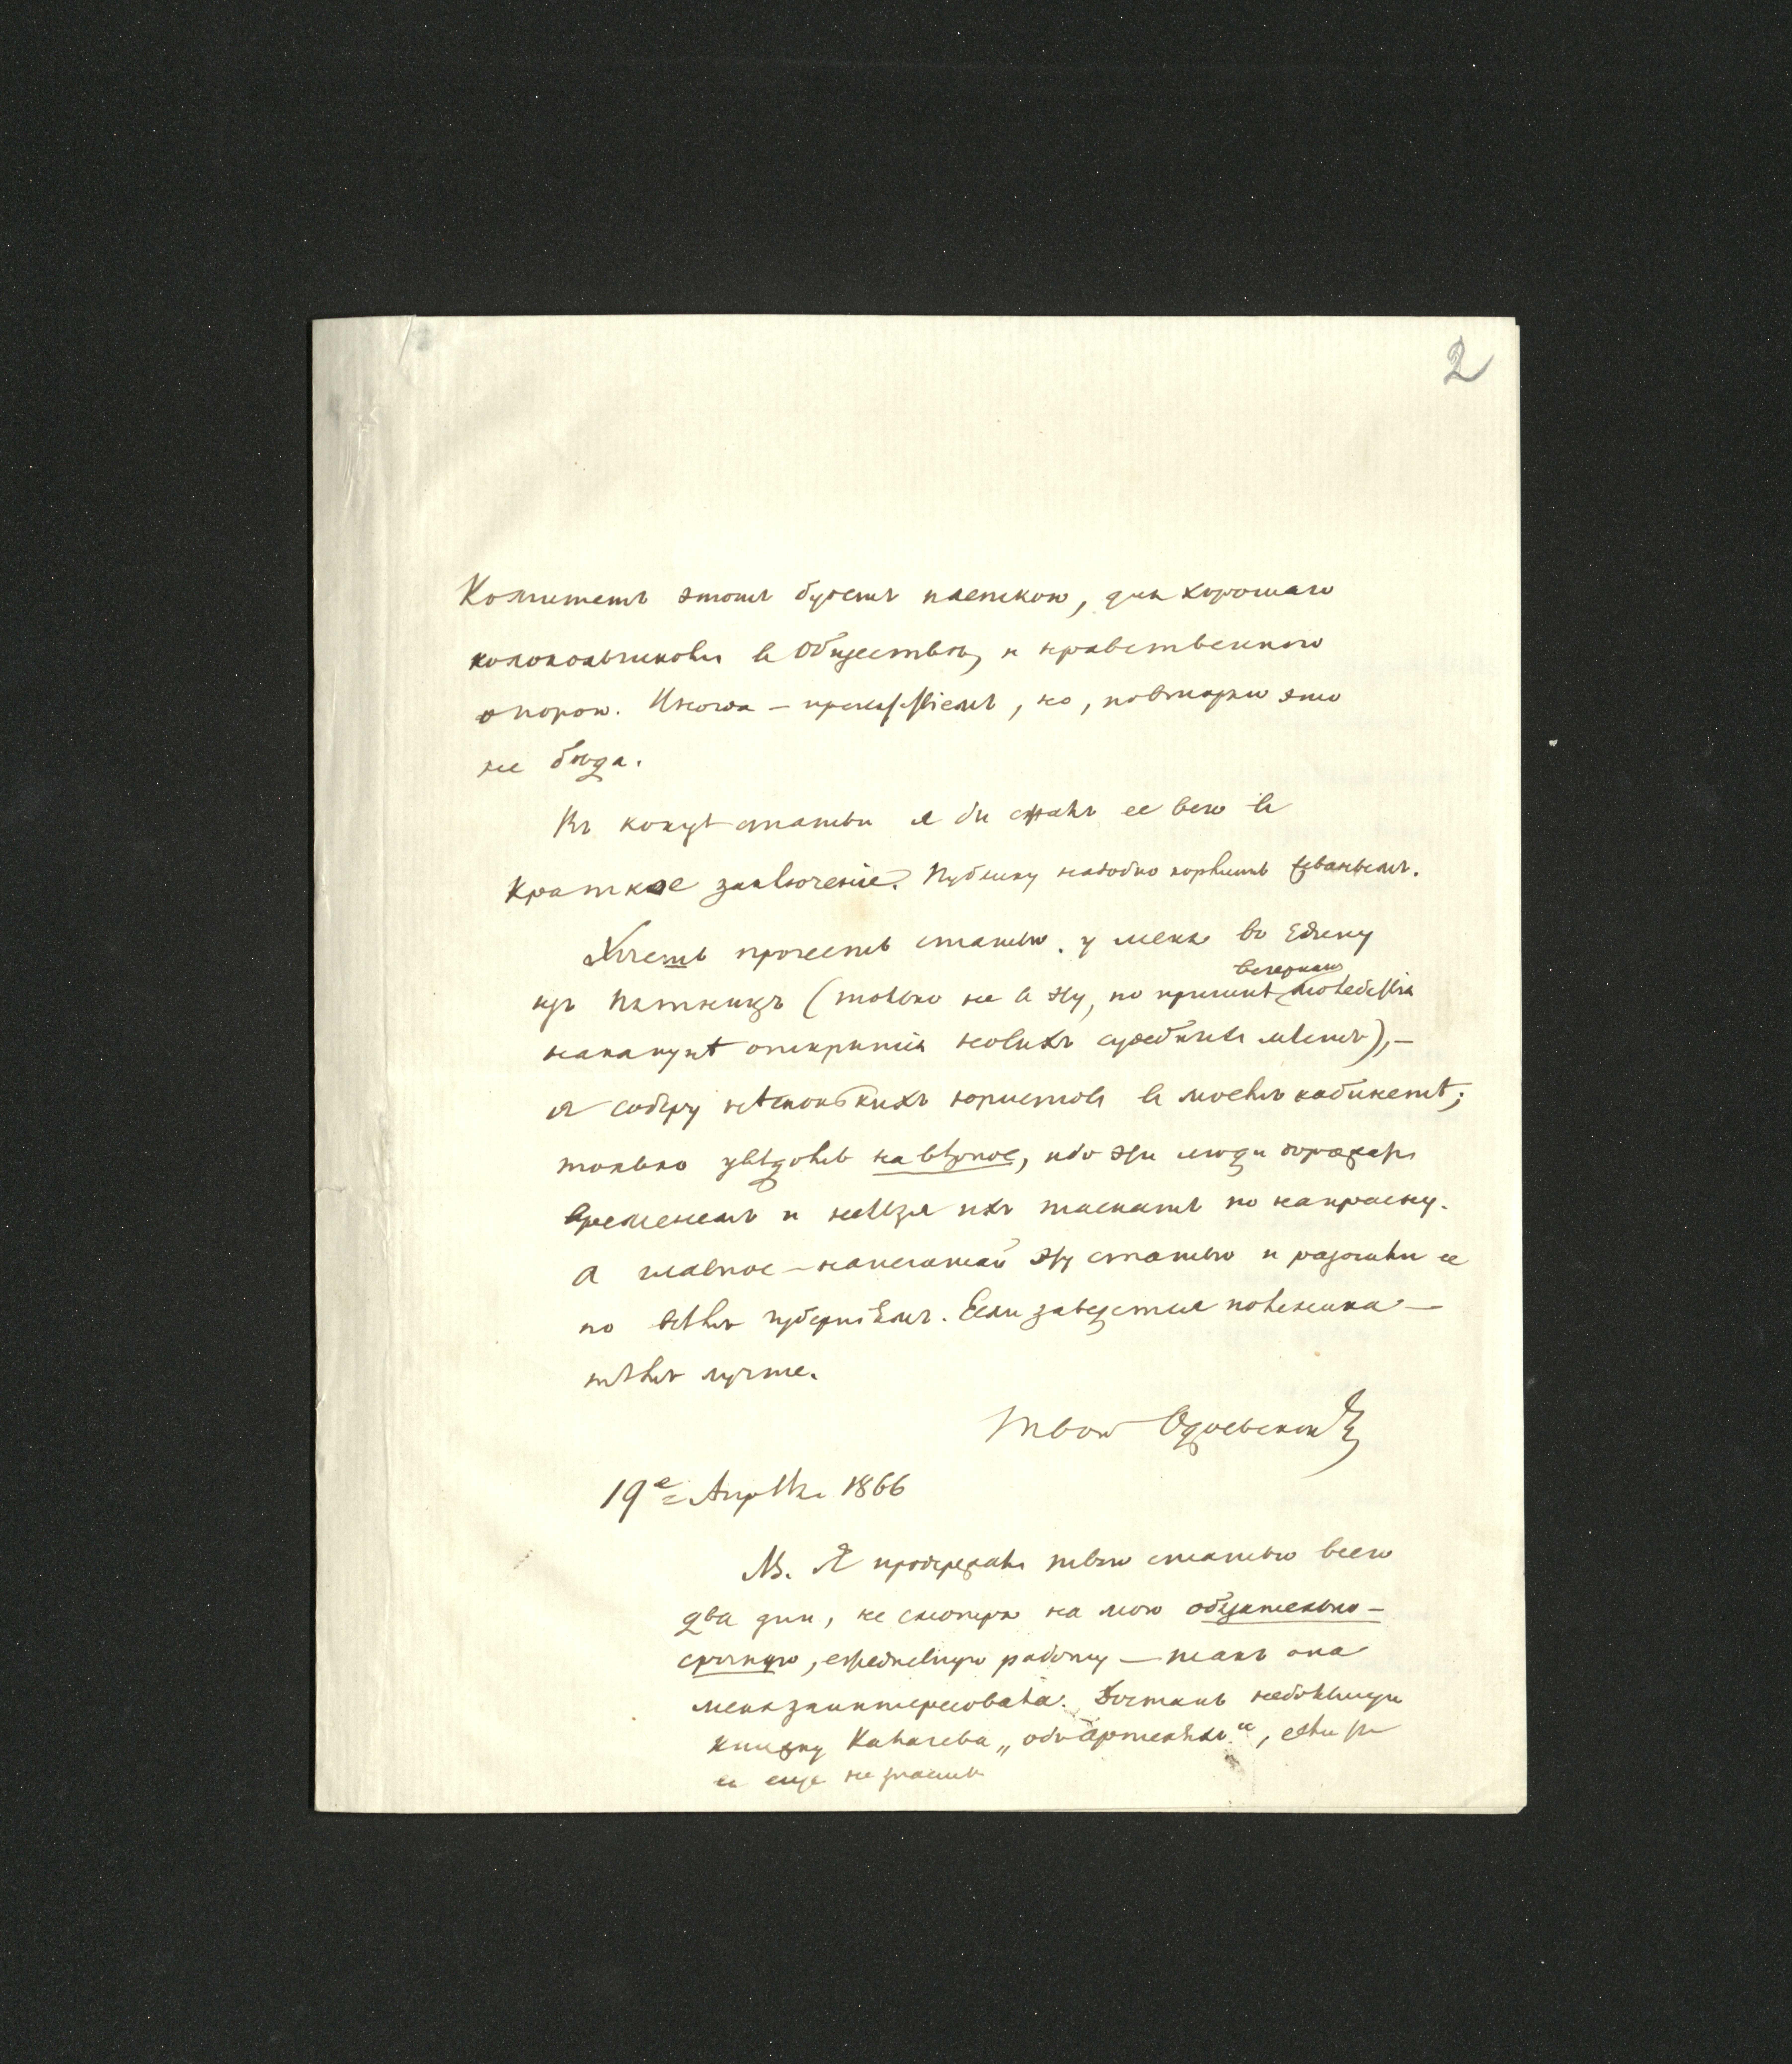 2
Комитетъ этотъ будетъ плеткою, для хорошаго
колокольчиковъ въ Обществѣ, и нравственною
опорою. Иногда — препятствіемъ, но, повторяю это
не бѣда.
Въ концѣ статьи я бы сжалъ ее всю въ
краткое заключеніе. Публику надобно кормить
Хочешь прочесть статью у меня во едину
изъ пятницъ (только не въ эту, по причинѣ вечерняго молебствія
наканунѣ открытія новыхъ судебныхъ мѣстъ), —
я соберу нѣсколькихъ юристовъ въ моемъ кабинетѣ;
только увѣдомь навѣрное, ибо эти люди дорожатъ
временемъ и нельзя ихъ таскать по напрасну.
А главное — напечатай эту статью и разошли ее
по всѣмъ губерніямъ. Если заведется полемика —
тѣмъ лучше.
Твой Одоевскій
19е Апрѣля 1866
NB. Я продержалъ твою статью всего
два дни, не смотря на мою обязательно-
срочную, ежедневную работу — такъ она
меня заинтересовала. Достань небольшую
книжку Калачева „объ Артеляхъ", если ты
ее еще не знаешь